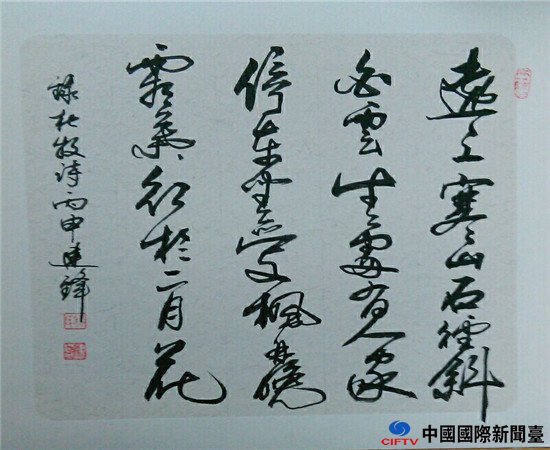 遠上寒山石徑斜
白雲生處有人家
停車坐愛楓林晚
霜葉紅於二月花
錄杜牧诗丙申建鋒
CIFTV
中國國際新聞臺